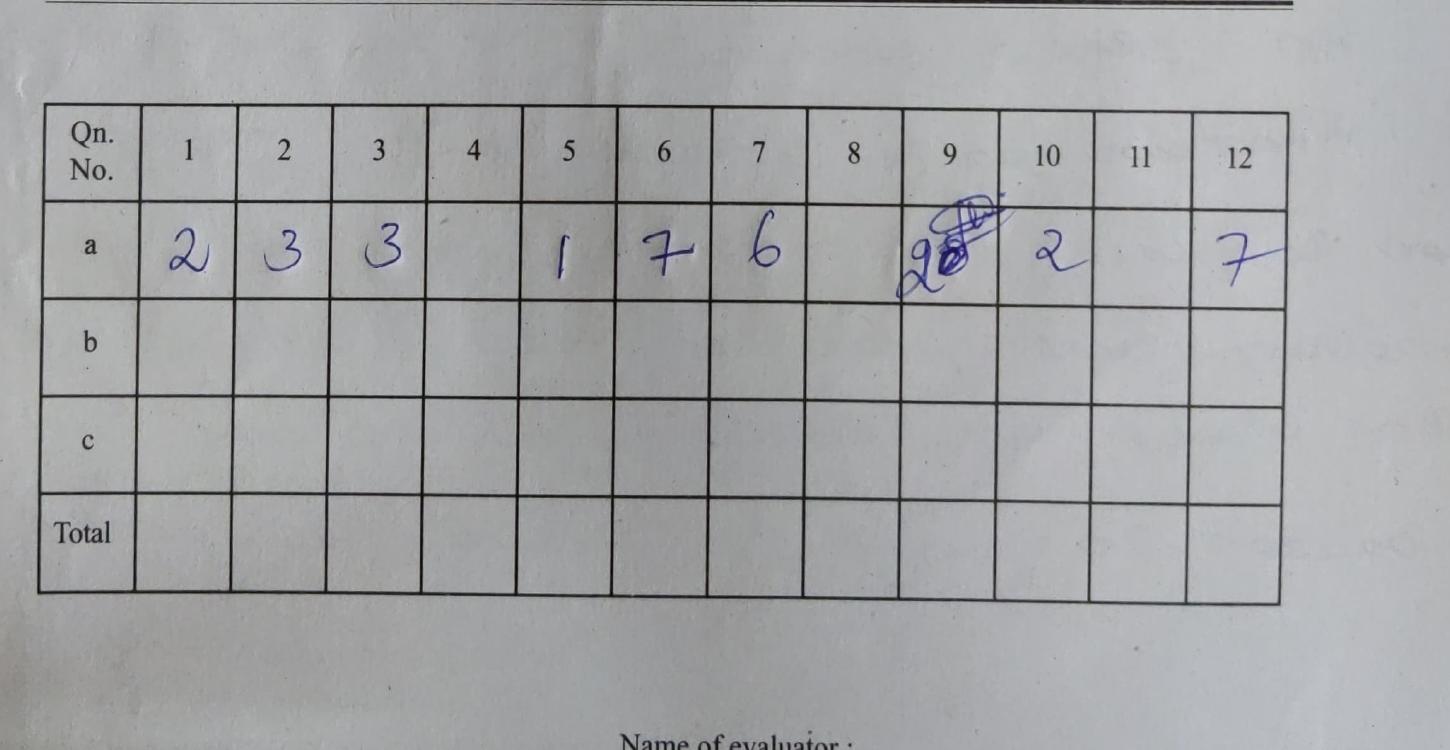 Qn. No. 1 2 3 4 5 6 7 8 9 10 11 12
a 2 3 3 1 7 6 2 2 7
b
c
Total
Name of evaluator :